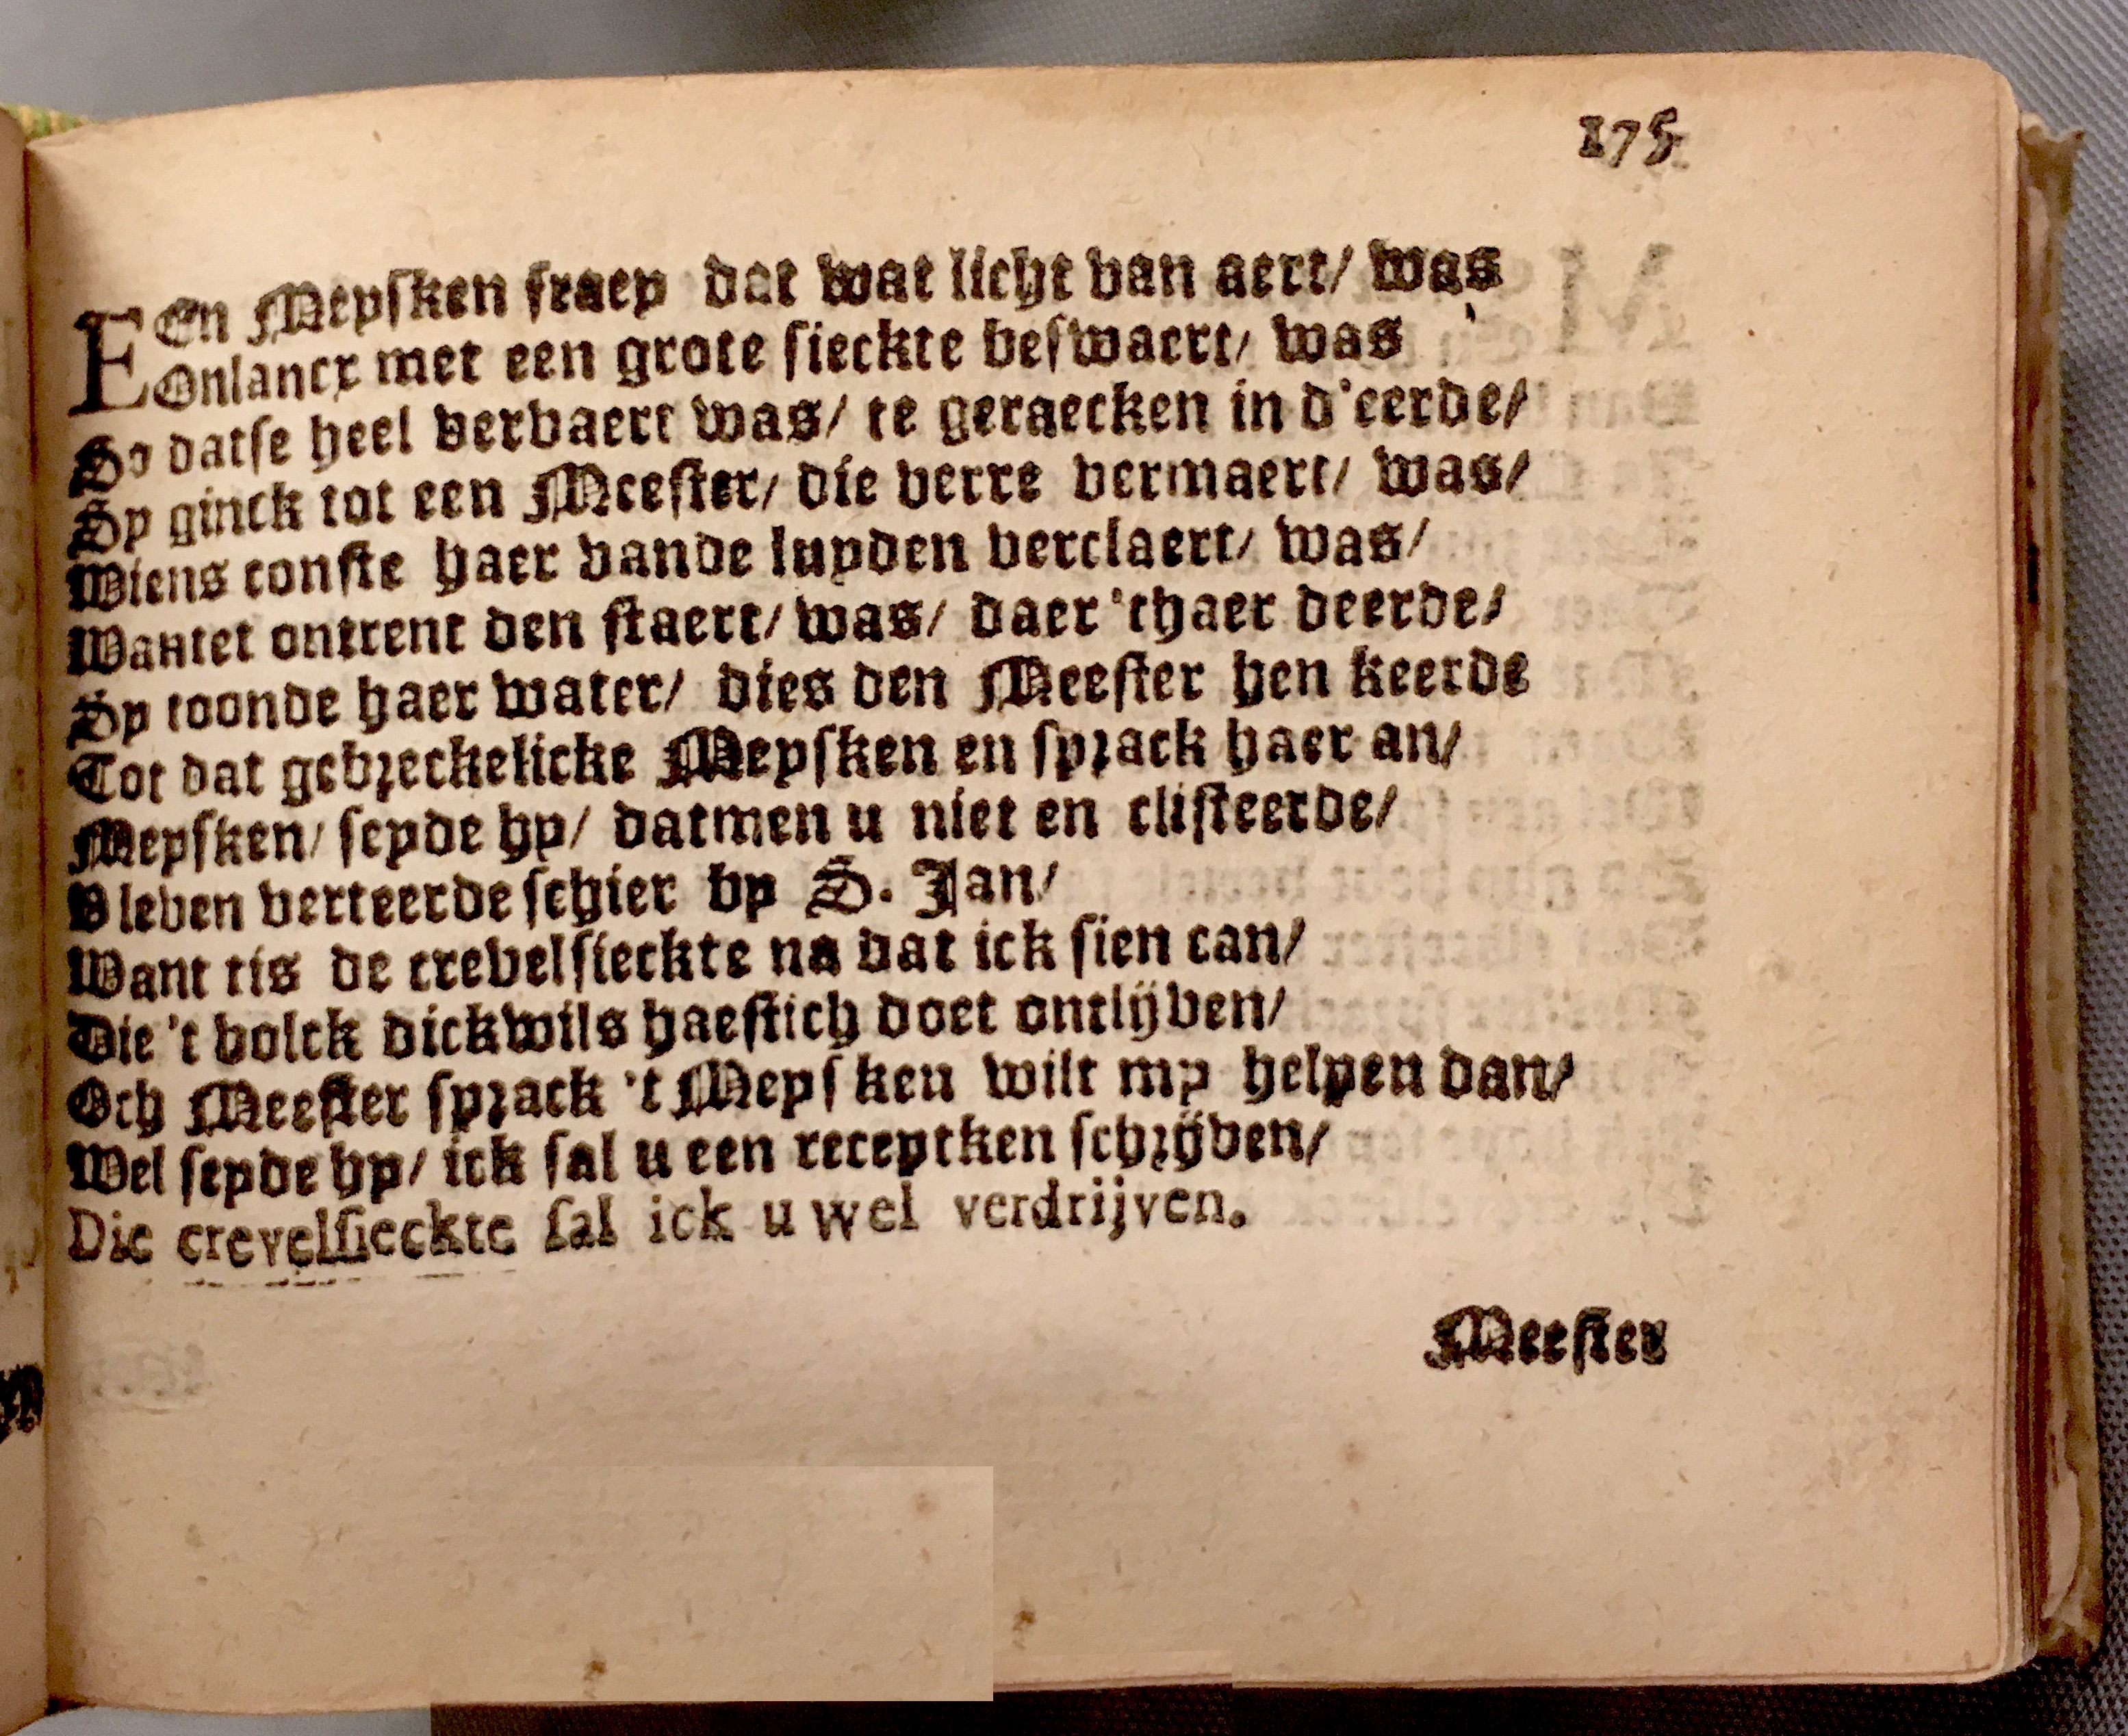 175
EEn Meysken fraey dat wat licht van aert/ was
Onlancx met een grote sieckte beswaert/ was
So datse heel vervaert was/ te geraecken in d'eerde/
Sy ginck tot een Meester/ die verre vermaert/ was/
Wiens conste haer vande luyden verclaert/ was/
Wantet ontrent den staert/ was/ daer 'thaer deerde/
Sy toonde haer water/ dies den Meester hen keerde
Tot dat gebreckelicke Meysken en sprack haer an/
Meysken/ seyde hy/ datmen u niet en clisteerde/
V leven verteerde schier by S. Jan/
Want tis de crevelsieckte na dat ick sien can/
Die 't volck dickwils haestich doet ontlijven/
Och Meester sprack 't Meysken wilt my helpen dan/
Wel seyde hy/ ick sal u een receptken schrijven/
Die crevelsieckte sal ick u wel verdrijven.
Meester